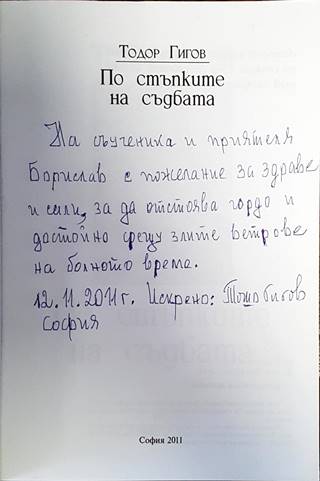 Тодор Гигов
По стъпките
на съдбата
На съученика и приятеля
Борислав с пожелание за здраве
и сили, за да отстоява гордо и
достойно срещу злите ветрове
на болното време.
12.11.2011г. Искрено: Тошо Гигов
София
София 2011